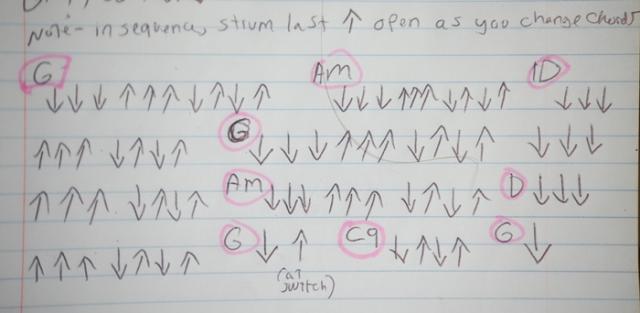 Note - in sequence, strum last ↑ open as you change chords
G Am D
↓↓↓ ↑↑↑ ↓↑↓↑ ↓↓↓ ↑↑↑ ↓↑↓↑ ↓↓↓
G
↑↑↑ ↓↑↓↑ ↓↓↓ ↑↑↑ ↓↑↓↑ ↓↓↓
Am D
↑↑↑ ↓↑↓↑ ↓↓↓ ↑↑↑ ↓↑↓↑ ↓↓↓
G C9 G
↑↑↑ ↓↑↓↑ ↓ ↑ ↓↑↓↑ ↓
(at
switch)